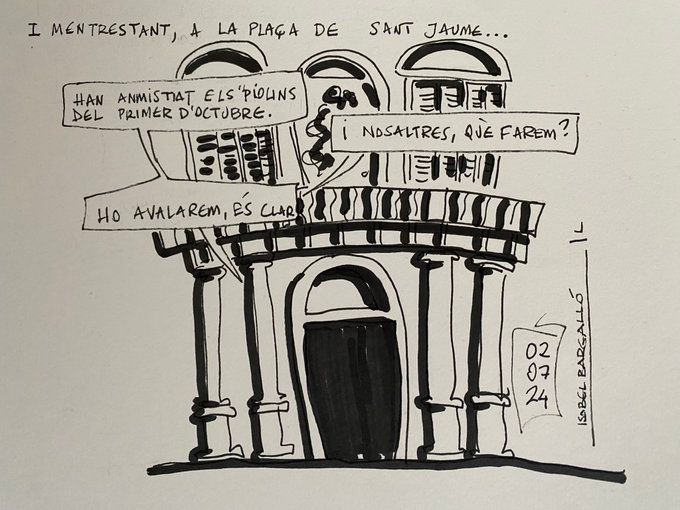 I MENTRESTANT, A LA PLAÇA DE SANT JAUME...
HAN ANMISTIAT ELS 'PIOLINS
DEL PRIMER D'OCTUBRE.
I NOSALTRES, QUÈ FAREM?
HO AVALAREM, ÉS CLAR
02
07
24
ISABEL BARGALLÓ